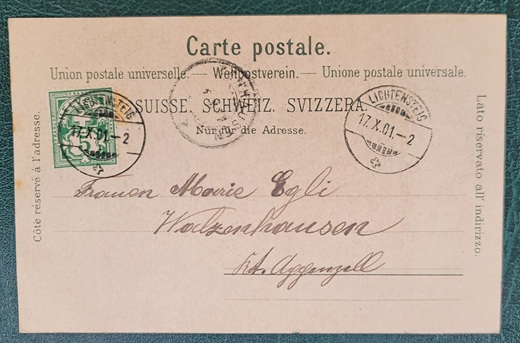 Carte postale.
Union postale universelle. — Weltpostverein. — Unione postale universale.
SUISSE. SCHWEIZ. SVIZZERA.
Nur für die Adresse.
Côté réservé à l'adresse.
Lato riservato all' indirizzo.
LICHTENSTEIG
17.X.01.-2
5
LICHTENSTEIG
17.X.01.-2
Frauen Marie Egli
Walzenhausen
Kt. Appenzell